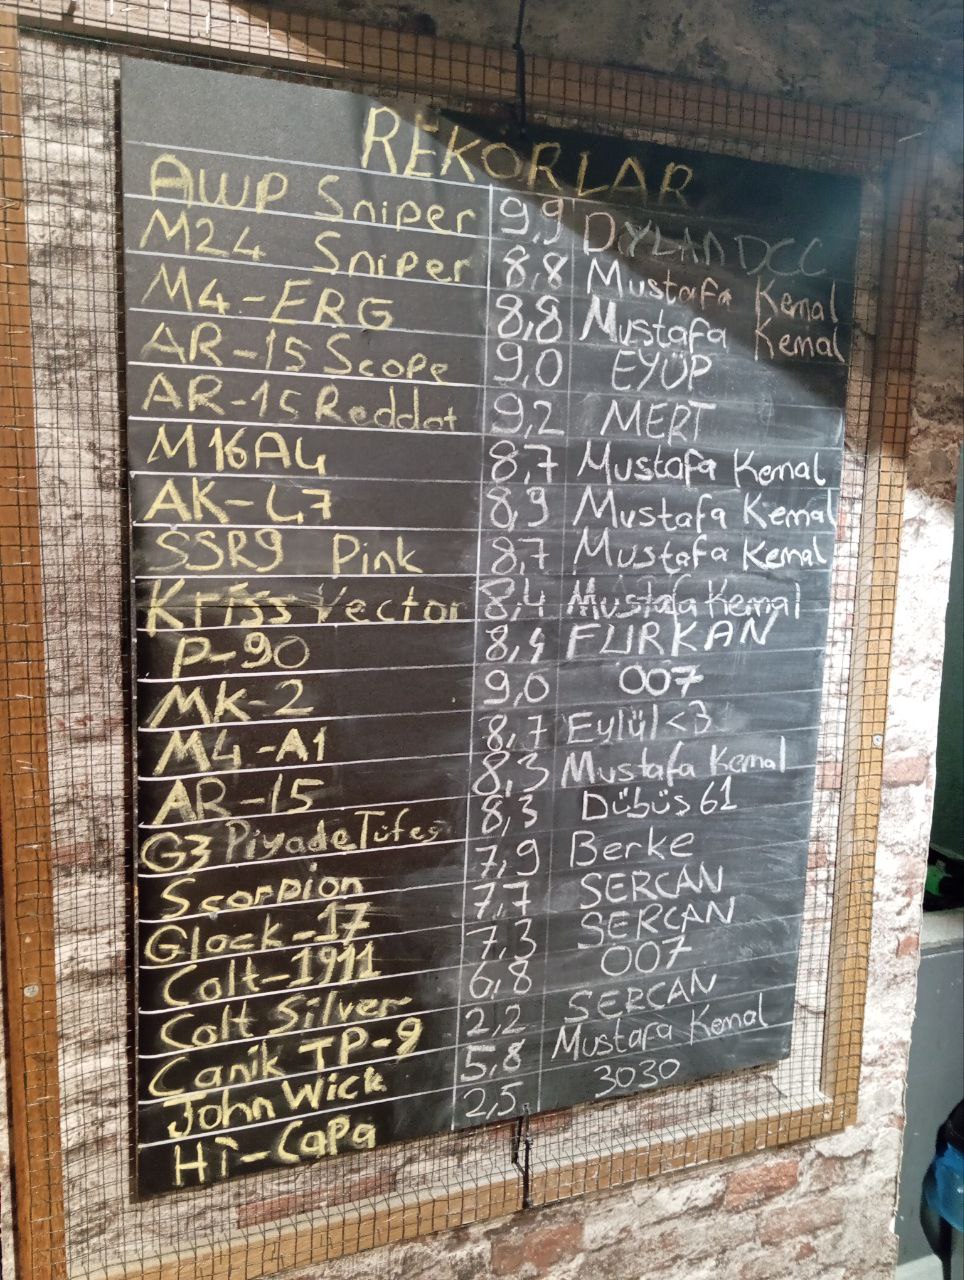 REKORLAR
AWP Sniper 9,9 DYLANDCC
M24 Sniper 8,8 Mustafa Kemal
M4-ERG 8,8 Mustafa Kemal
AR-15 Scope 9,0 EYÜP
AR-15 Reddot 9,2 MERT
M16A4 8,7 Mustafa Kemal
AK-47 8,9 Mustafa Kemal
SSR9 Pink 8,7 Mustafa Kemal
Kriss Vector 8,4 Mustafa Kemal
P-90 8,4 FURKAN
MK-2 9,0 007
M4-A1 8,7 Eylül <3
AR-15 8,3 Mustafa Kemal
G3 Piyade Tüfeg 8,3 Dübüs 61
Scorpion 7,9 Berke
Glock-17 7,7 SERCAN
Colt-1911 7,3 SERCAN
Colt Silver 6,8 007
Canik TP-9 2,2 SERCAN
John Wick 5,8 Mustafa Kemal
Hi-CaPa 2,5 3030